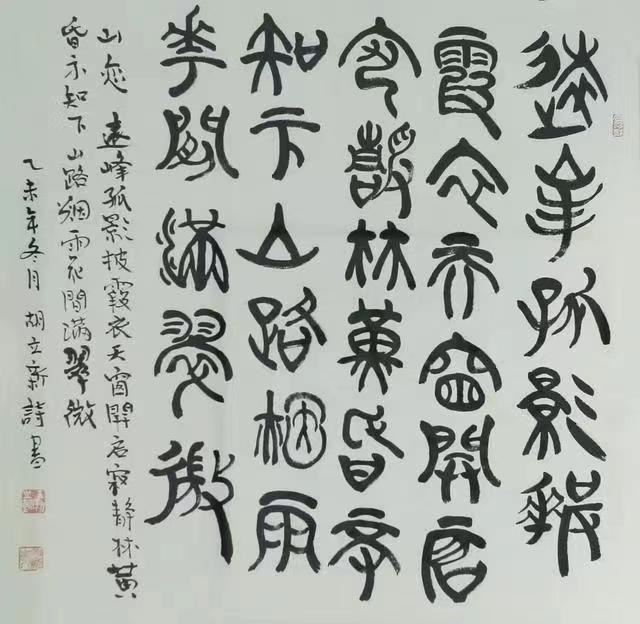 遠峯孤影披
霞衣天窗開启
寂靜林黄昏不
知下山路烟雨
花間滿翠微
山恋 遠峰孤影披霞衣天窗開启寂静林黄
昏不知下山路烟雨花間满翠微
乙未年冬月 胡立新詩書